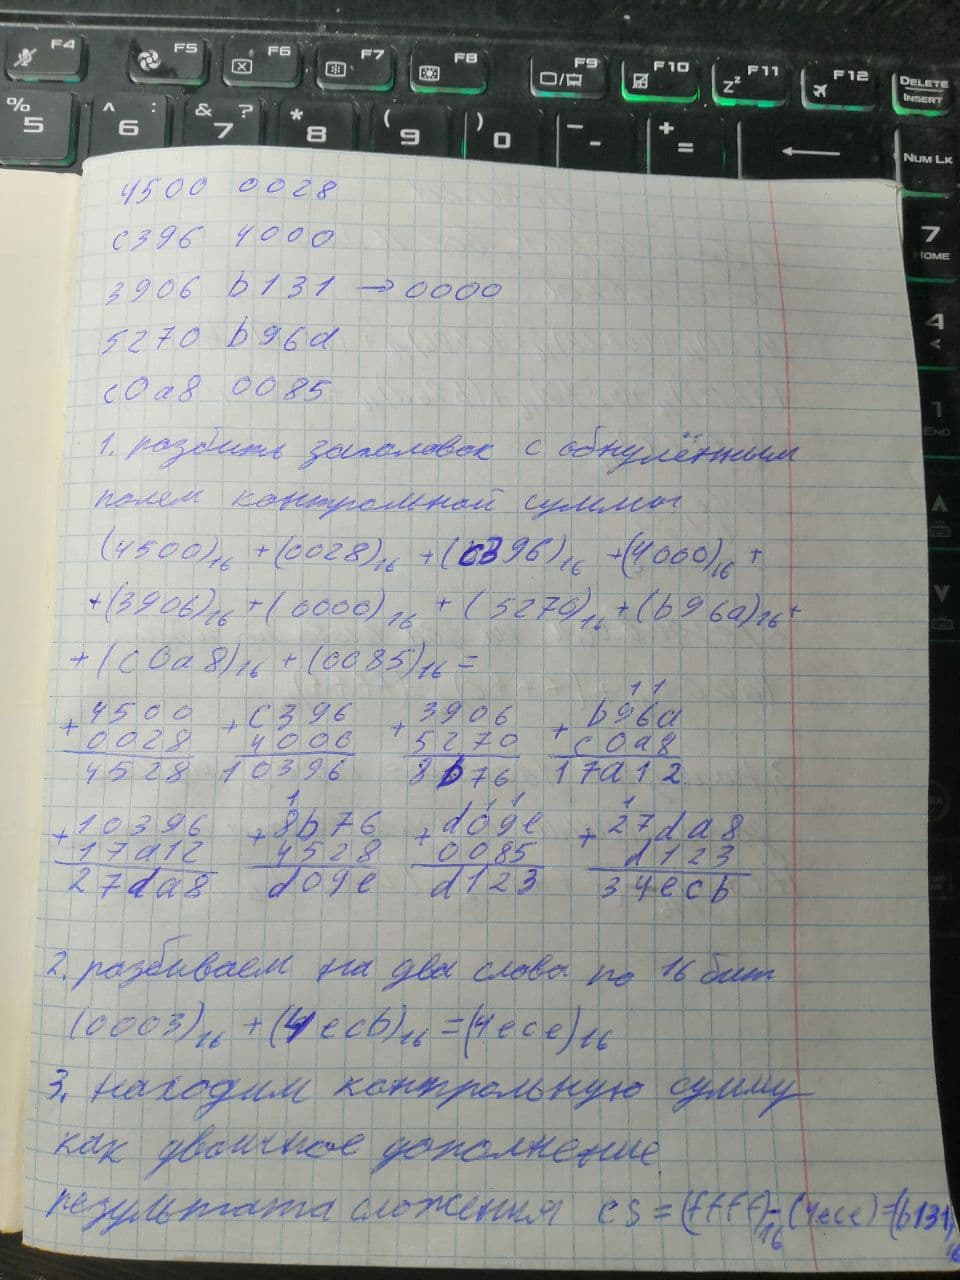 F4 F5 F6 F7 F8 F9 F10 F11 F12 DELETE
INSERT
% 5 ^ : 6 & ? 7 * 8 ( 9 ) 0 _ - + = NUM LK
7
HOME
4
1
END
4500 0028
c396 4000
3906 b131 → 0000
5270 b96a
c0a8 0085
1. разбить заголовок с обнулённым
полем контрольной суммы
(4500)16 + (0028)16 + (c396)16 + (4000)16 +
+ (3906)16 + (0000)16 + (5270)16 + (b96a)16 +
+ (c0a8)16 + (0085)16 =
1 1
+ 4500 + c396 + 3906 + b96a
0028 4000 5270 c0a8
4528 10396 8b76 17a12
1 1 1 1
+ 10396 + 8b76 + d09e + 27da8
17a12 4528 0085 d123
27da8 d09e d123 34ecb
2. разбиваем на два слова по 16 бит
(0003)16 + (4ecb)16 = (4ece)16
3. находим контрольную сумму
как двоичное дополнение
результата сложения cs = (ffff)16 - (4ece) = (b131)16